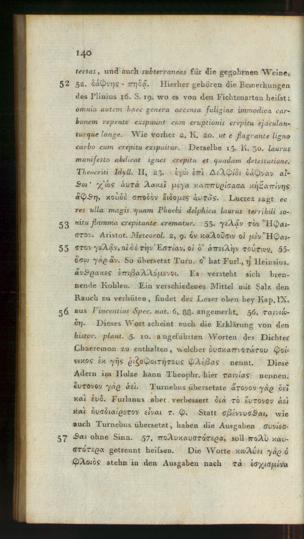 140
testas, und auch subterraneas für die gegohrnen Weine.
52 52. δάφνης - πηδᾷ. Hierher gehören die Bemerkungen
des Plinius 16. S. 19. wo es von den Fichtenarten heifst:
omnia autem haec genera accensa fuligine immodica car-
bonem repente exspuunt cum eruptionis crepitu ejaculan-
turque longe. Wie vorher 2, K. 20. ut e flagrante ligno
carbo cum crepitu exspuitur. Derselbe 15. K. 30. laurus
manifesto abdicat ignes crepitu et quadam detestatione.
Theocriti Idyll. II, 23. ἐγὼ ἐπὶ Δελφίδι δάφναν αἴ-
θω· χ᾽ ὡς αὐτὰ λακεῖ μέγα καππυρίσασα κἠξαπίνης
ἅφθη, κοὐδὲ σποδὸν εἴδομες αὐτᾶς. Lucrez sagt ec
res ulla magis quam Phoebi delphica laurus terribili so-
53 nitu flamma crepitante crematur. 53. γελᾷν τὸν Ἥφαι-
στον. Aristot. Meteorol. 2, 9. ὃν καλοῦσιν οἱ μὲν Ἥφαι-
55 στον γελᾷν, οἱ δὲ τὴν Ἑστίαν, οἱ δ᾽ ἀπειλὴν τούτων. 55.
ὅσῳ γὰρ ἂν. So übersetzt Turn. ὃ hat Furl., ἢ Heinsius.
ἄνθρακες ἐπιβαλλόμενοι. Es versteht sich bren-
nende Kohlen. Ein verschiedenes Mittel mit Salz den
Rauch zu verhüten, findet der Leser oben bey Kap. IX.
56 aus Vincentius Spec. nat. 6, 88. angemerkt. 56. ταινιώ-
δη. Dieses Wort scheint auch die Erklärung von den
histor. plant. 5. 10. angeführten Worten des Dichter
Chaeremon zu enthalten, welcher
ἐκ γῆς ῥιζοφοιτήτους φλέβας nennt. Diese
Adern im Holze kann Theophr. hier ταινίας nennen.
εὔτονον γὰρ ἀεί. Turnebus übersetzte ἄτονον γὰρ ἀεὶ
καὶ ἐνδ. Furlanus aber verbessert διὰ τὸ ἔυτονον ἀεὶ
καὶ δυσδιαίρετον εἶναι τ. φ. Statt σβέννυσθαι, wie
auch Turnebus übersetzt, haben die Ausgaben
57 θαι ohne Sinn. 57. πολυκαυστότερα, soll πολὺ καυ-
στότερα getrennt heifsen. Die Worte καλύει γὰρ ὁ
φλοιὸς stehn in den Ausgaben nach τὰ ἐσχισμένα